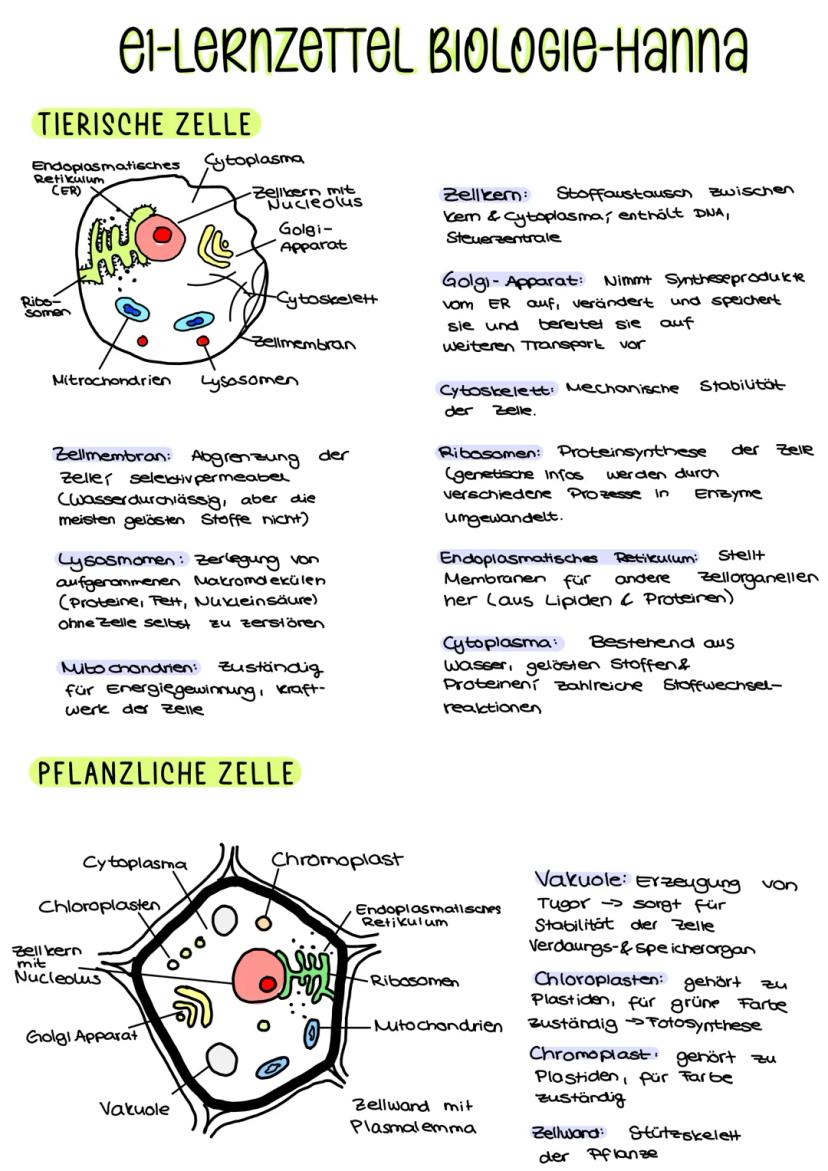 e1-Lernzettel Biologie-Hanna
TIERISCHE ZELLE
Endoplasmatisches
Retikulum
(ER)
Cytoplasma
Zellkern mit
Nucleolus
Golgi-
Apparat
Ribo-
somen
Cytoskelett
Zellmembran
Mitrochondrien
Lysosomen
Zellmembran: Abgrenzung der
Zelle; selektivpermeabel
(Wasserdurchlässig, aber die
meisten gelösten Stoffe nicht)
Lysosmomen: Zerlegung von
aufgenommenen Makromolekülen
(Proteine, Fett, Nukleinsäure)
ohne Zelle selbst zu zerstören
Mitochondrien: Zuständig
für Energiegewinnung, Kraft-
werk der Zelle
Zellkern: Stoffaustausch zwischen
Kern & Cytoplasma; enthält DNA,
Steuerzentrale
Golgi-Apparat: Nimmt Syntheseprodukte
vom ER auf, verändert und speichert
sie und bereitet sie auf
weiteren Transport vor
Cytoskelett: Mechanische Stabilität
der Zelle.
Ribosomen: Proteinsynthese der Zelle
(genetische Infos werden durch
verschiedene Prozesse in Enzyme
umgewandelt.
Endoplasmatisches Retikulum: Stellt
Membranen für andere Zellorganellen
her (aus Lipiden & Proteinen)
Cytoplasma: Bestehend aus
Wasser, gelösten Stoffen &
Proteinen; zahlreiche Stoffwechsel-
reaktionen
PFLANZLICHE ZELLE
Cytoplasma
Chromoplast
Chloroplasten
Endoplasmatisches
Retikulum
Zellkern
mit
Nucleolus
Ribosomen
Golgi Apparat
Mitochondrien
Vakuole
Zellwand mit
Plasmalemma
Vakuole: Erzeugung von
Tugor -> sorgt für
Stabilität der Zelle
Verdaungs-& Speicherorgan
Chloroplasten: gehört zu
Plastiden, für grüne Farbe
zuständig -> Fotosynthese
Chromoplast: gehört zu
Plastiden, für Farbe
zuständig
Zellwand: Stützskelett
der Pflanze